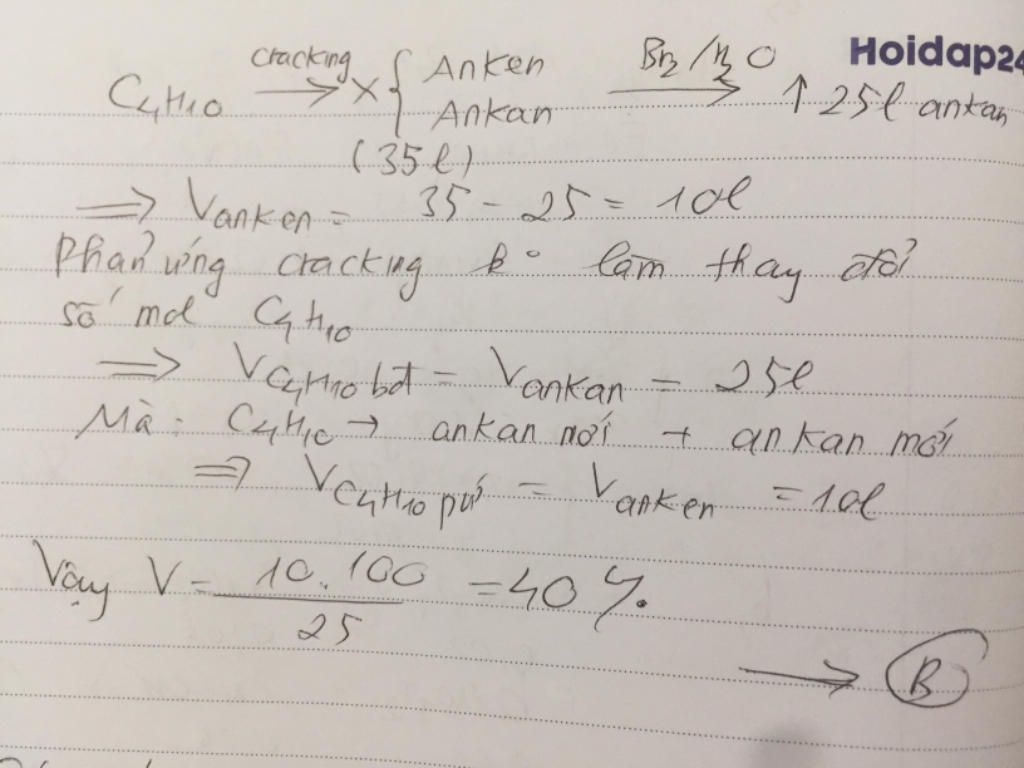 Hoidap24
C4H10 cracking → X { Anken Ankan Br2/H2O → ↑ 25l ankan
(35l)
⇒ Vanken = 35 - 25 = 10l
Phản ứng cracking k° làm thay đổi
số mol C4H10
⇒ VC4H10 bđ = Vankan = 25l
Mà: C4H10 → ankan mới + ankan mới
⇒ VC4H10 pứ = Vanken = 10l
Vậy V = 10.100 / 25 = 40%.
→ B